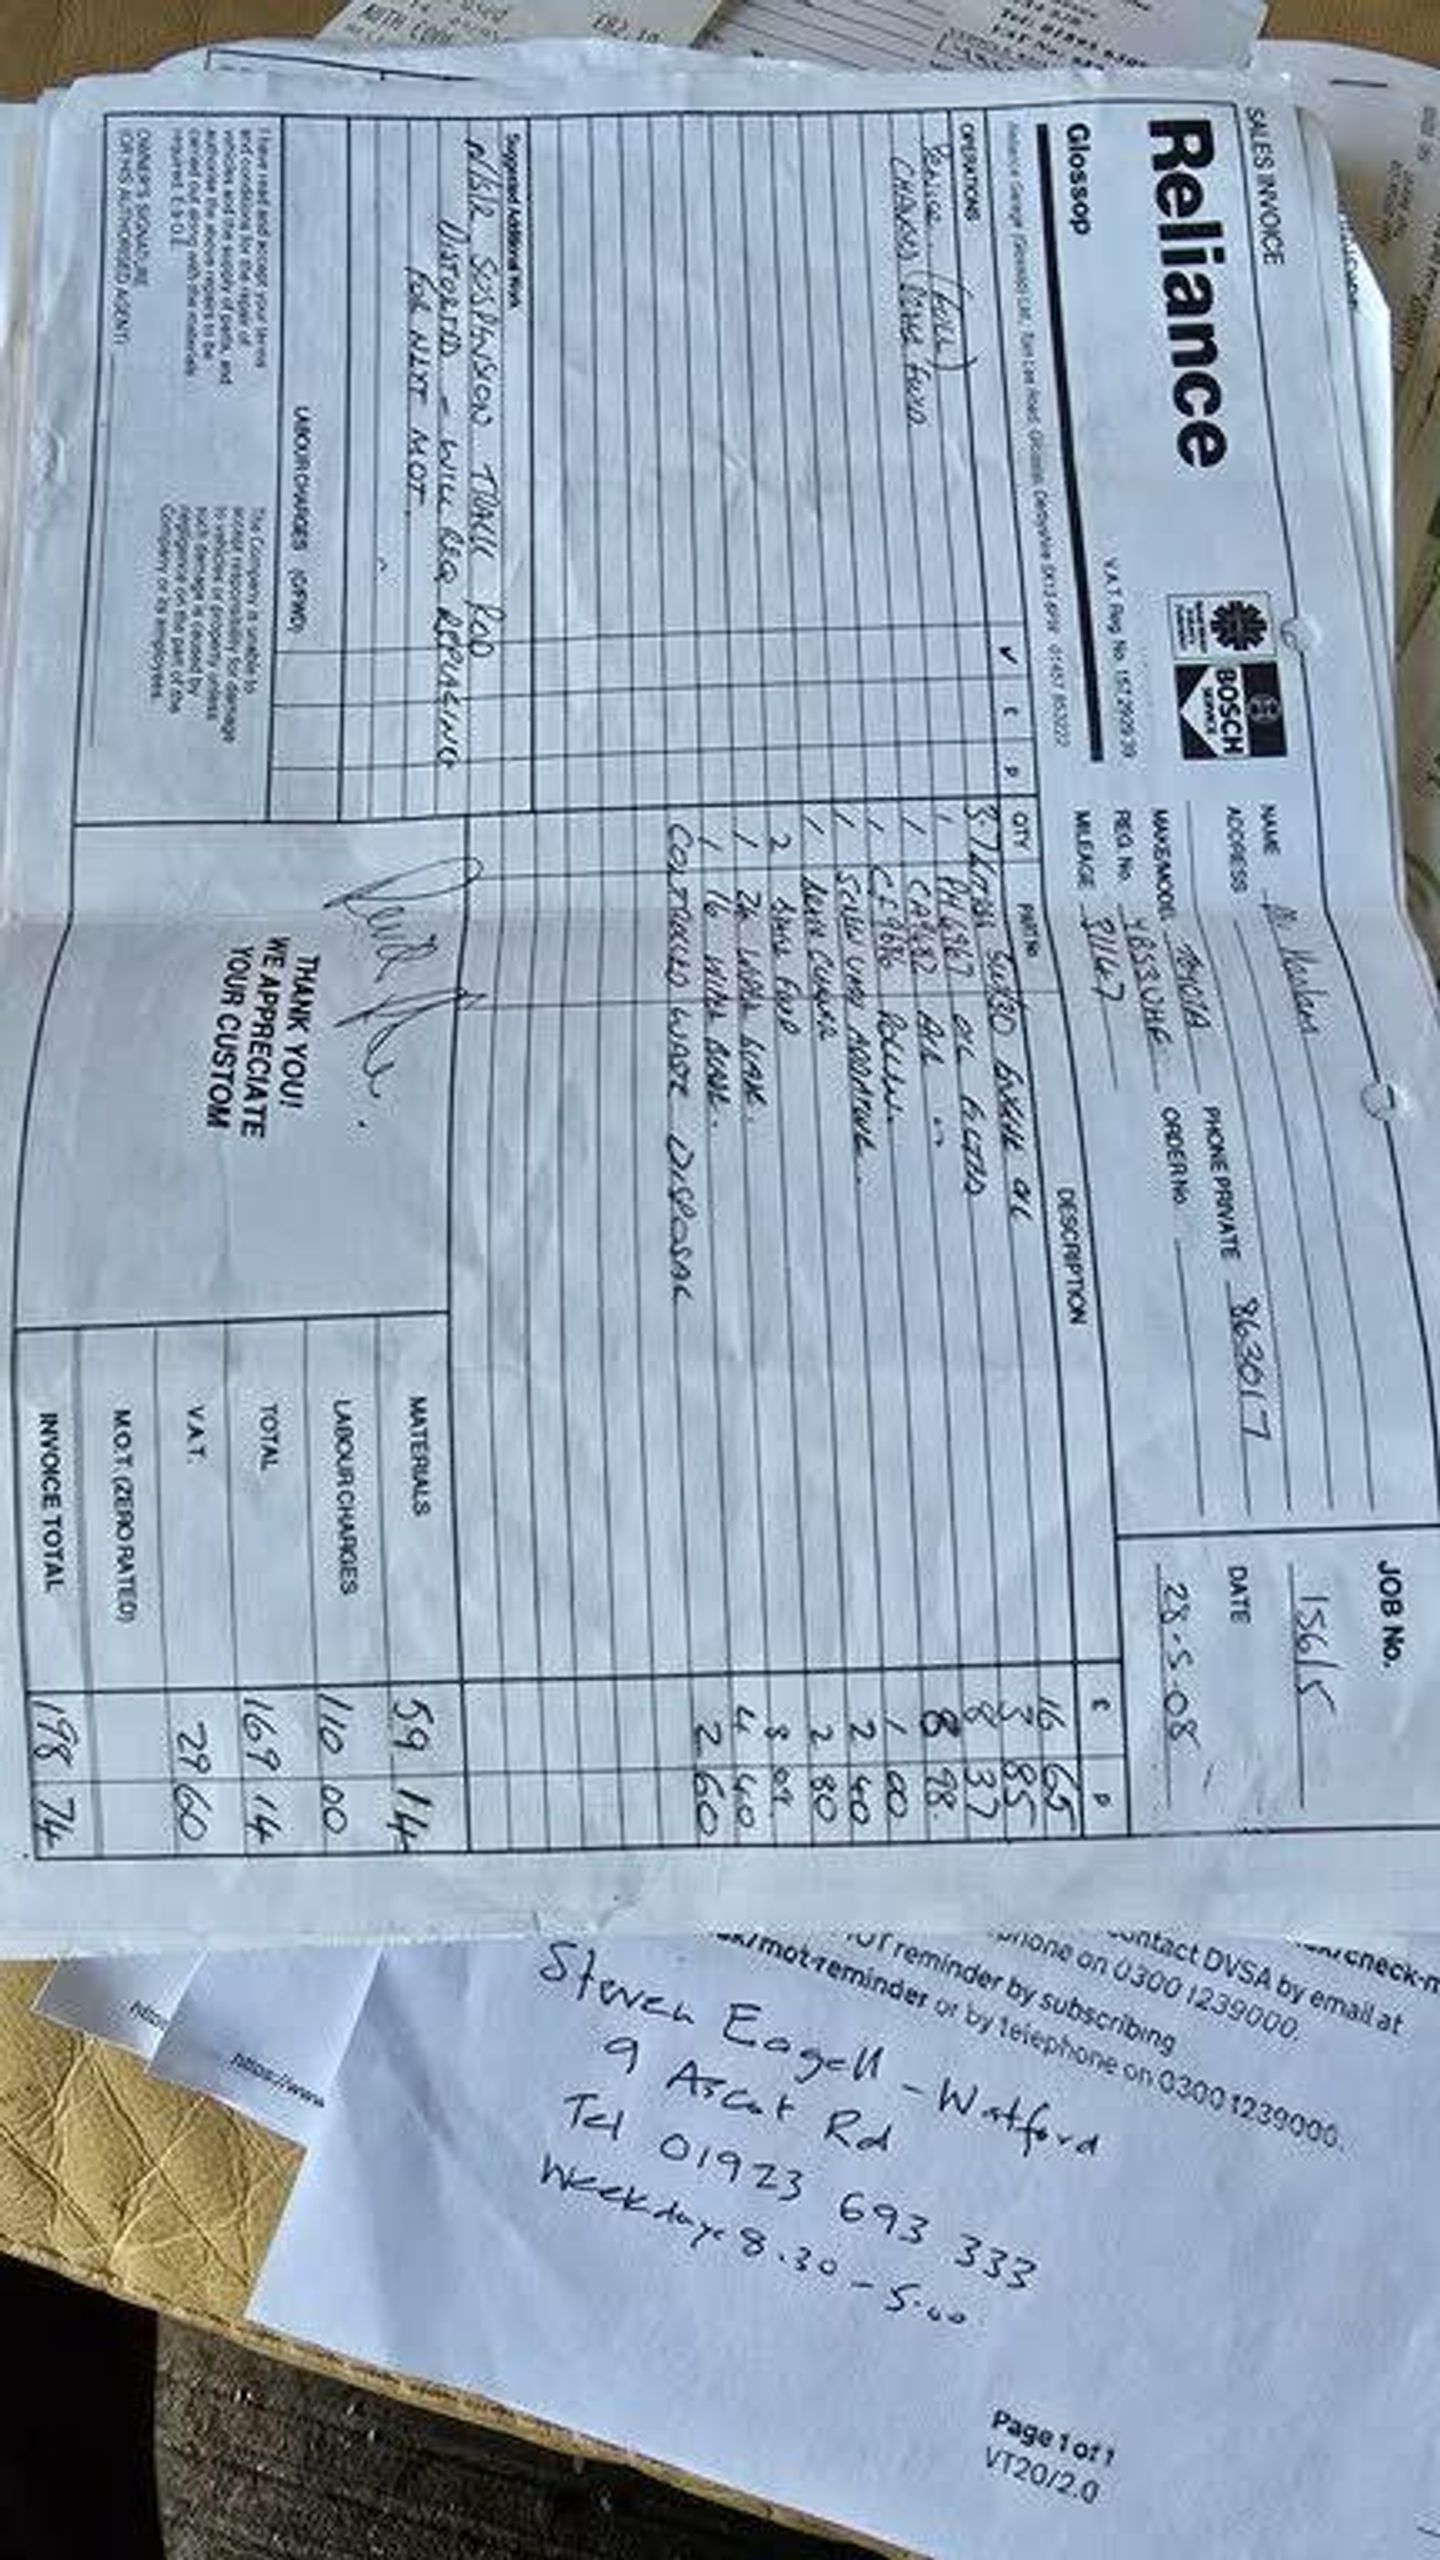 SALES INVOICE
Reliance
BOSCH
SERVICE
Glossop
V.A.T. Reg. No. 157 2929 39
Reliance Garage (Glossop) Ltd, Turn Lee Road, Glossop, Derbyshire 01457 853222
NAME Mr
ADDRESS
PHONE PRIVATE 863017
MAKE/MODEL TOYOTA
ORDER No.
REG. No.
MILEAGE 91147
JOB No.
15615
DATE
28-5-08
OPERATIONS £ P
Service (FULL)
CHANGE BRAKE FLUID
QTY PART No DESCRIPTION £ P
ENGINE OIL 16 65
3 85
1 PH6967 OIL FILTER 8 37
1 CA9482 AIR " 8 98
1 CF9686 POLLEN. 1 00
1 SCREEN WASH ADDITIVE. 2 40
1 BRAKE CLEANER 2 80
2 BRAKE FLUID 8 09
1 26 WIPER BLADE. 4 40
1 16 WIPER BLADE. 2 60
CONTROLLED WASTE DISPOSAL
Suggested Additional Work
N/S/R SUSPENSION TRACK ROD
DISTORTED - WILL REQ REPLACING
FOR NEXT MOT.
LABOUR CHARGES (C/FWD)
I have read and accept your terms
and conditions for the repair of
vehicles and the supply of parts, and
authorise the above repairs to be
carried out along with the materials
required. E.&O.E.
OWNER'S SIGNATURE
(OR HIS AUTHORISED AGENT)
The Company is unable to
accept responsibility for damage
to vehicles or property unless
such damage is caused by
negligence on the part of the
Company or its employees.
THANK YOU!
WE APPRECIATE
YOUR CUSTOM
MATERIALS 59 14
LABOUR CHARGES 110 00
TOTAL 169 14
V.A.T. 29 60
M.O.T. (ZERO RATED)
INVOICE TOTAL 198 74
contact DVSA by email at
phone on 0300 1239000.
reminder by subscribing
mot-reminder or by telephone on 0300 1239000.
Steven Eagell - Watford
9 Ascot Rd
Tel 01923 693 333
Weekdays 8.30 - 5.00
https://www
Page 1 of 1
VT20/2.0